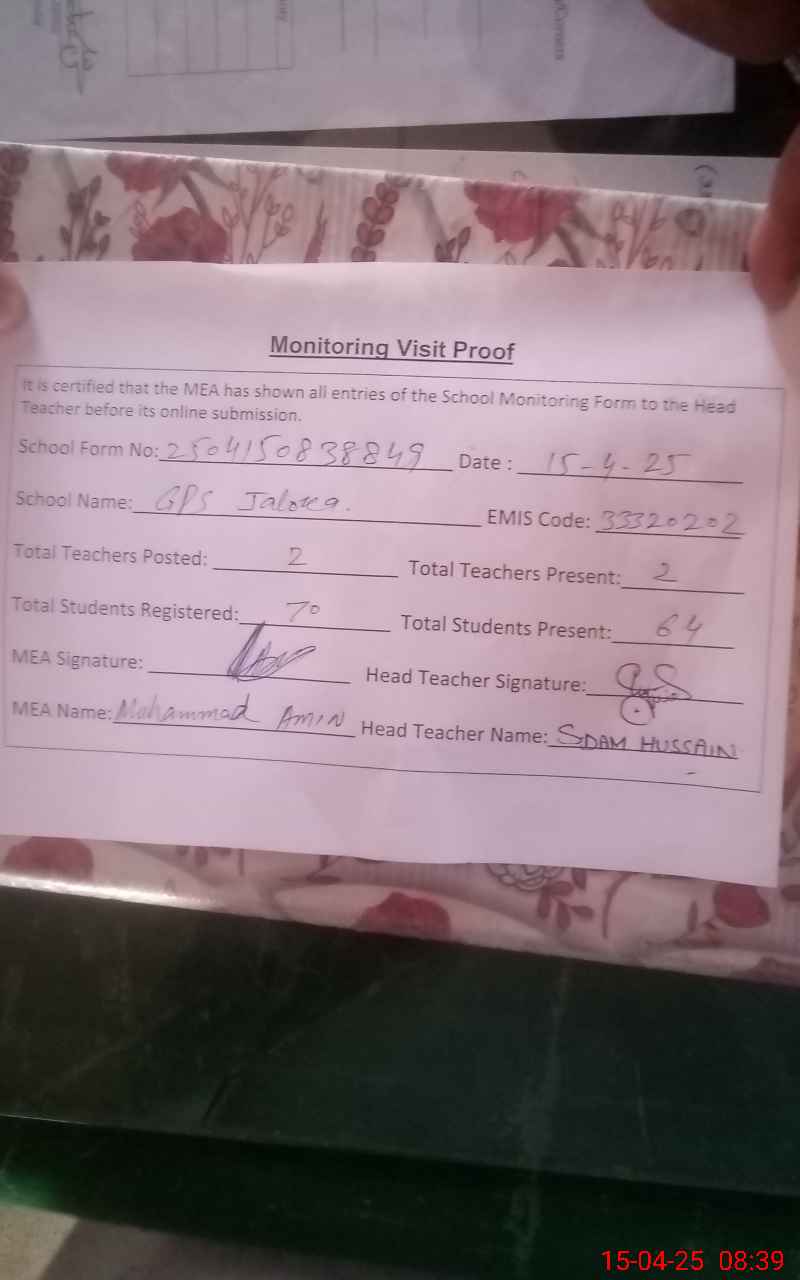 Monitoring Visit Proof
It is certified that the MEA has shown all entries of the School Monitoring Form to the Head
Teacher before its online submission.
School Form No: 2504150838849 Date : 15-4-25
School Name: GPS Jalowa. EMIS Code: 33320202
Total Teachers Posted: 2 Total Teachers Present: 2
Total Students Registered: 70 Total Students Present: 64
MEA Signature: Head Teacher Signature:
MEA Name: Mohammad AMIN Head Teacher Name: SDAM HUSSAIN
15-04-25 08:39